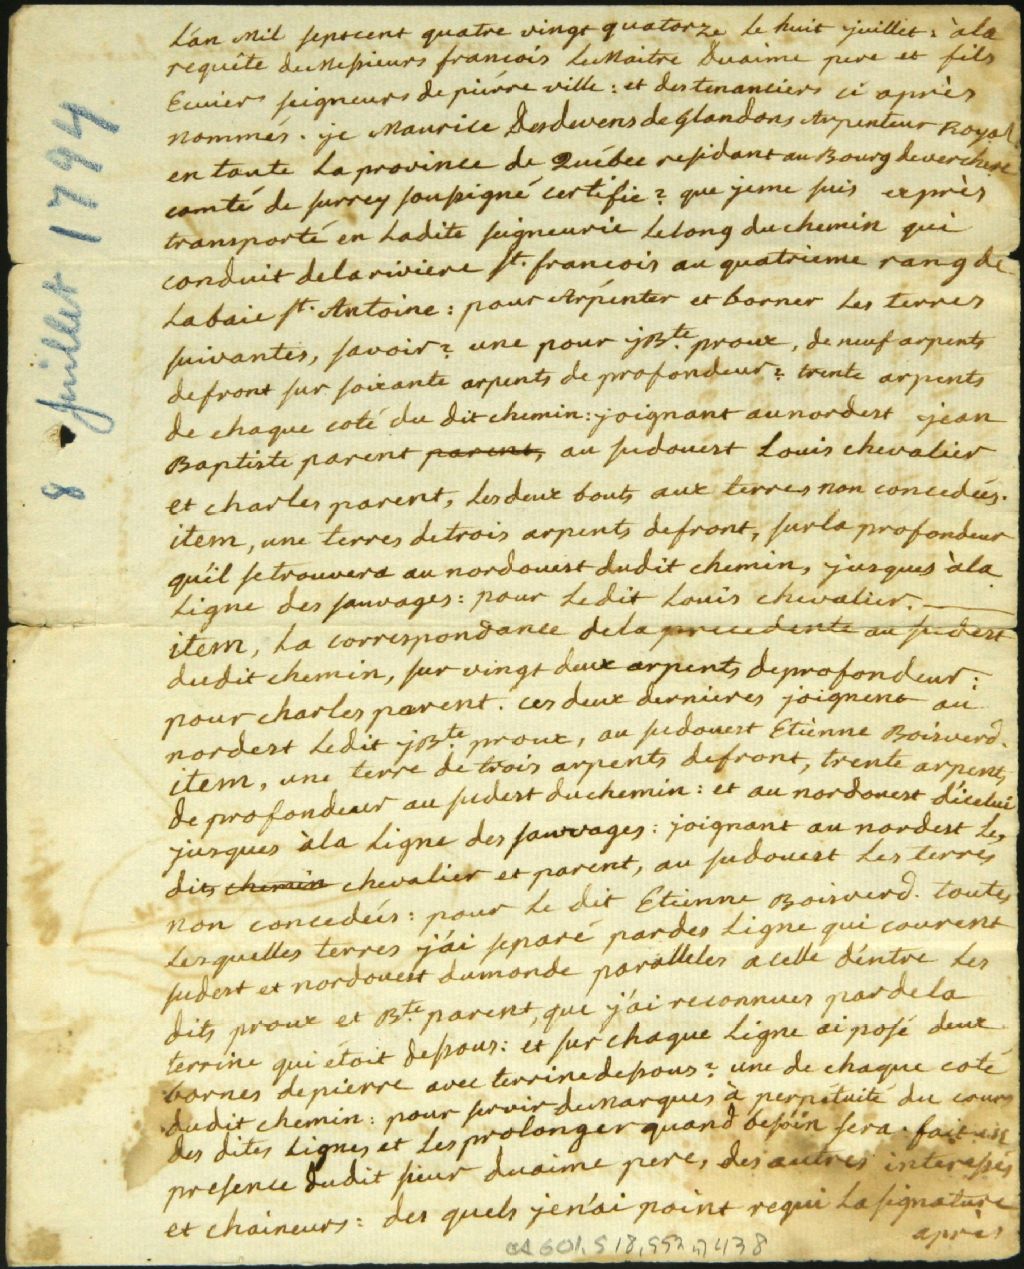 8 Juillet 1794
L'an Mil septcent quatre vingt quatorze le huit juillet : àla
requête de Messieurs francois LeMaitre Duaime pere et fils
Ecuiers seigneurs de piérre ville : et des tenanciers ci après
nommés. je Maurice Desdevens de glandons Arpenteur Royal
en toute la province de Québec residant au Bourg de verchere
comté de surrey soussigné certifie ? que jeme suis exprès
transporté en Ladite seigneurie Lelong du chemin qui
conduit dela riviere st. francois au quatrieme rang de
La baie st. Antoine : pour Arpenter et borner les terres
suivantes, savoir ? une pour jBte. proux, de neuf arpents
defront sur soixante arpents de profondeur ? trente arpents
de chaque coté du dit chemin : joignant au nordest jean
Baptiste parent parent, au sudouest Louis chevalier
et charles parent, les deux bouts aux terres non concedées.
item, une terres detrois arpents defront, sur la profondeur
qu'il setrouvera au nordouest dudit chemin, jusques àla
Ligne des sauvages : pour Ledit Louis chevalier.
item, La correspondance dela precedente au sudest
dudit chemin, sur vingt deux arpents de profondeur :
pour charles parent. ces deux dernieres joignent au
nordest Ledit jBte. proux, au sudouest Etienne Boisverd.
item, une terre de trois arpents defront, trente arpents
de profondeur au sudest duchemin : et au nordouest d'icelui
jusques àla Ligne des sauvages : joignant au nordest Les
dits chemin chevalier et parent, au sudouest Les terres
non concedées : pour Le dit Etienne Boisverd. toutes
Lesquelles terres j'ai separé par des Ligne qui courent
sudest et nordouest dumonde paralleles acelle d'entre Les
dits proux et Bte. parent, que j'ai reconnues par dela
terrine qui étoit dessous : et sur chaque Ligne ai posé deux
bornes depierre avec terrine dessous ? une de chaque coté
dudit chemin : pour servir demarques à perpétuité du cours
des dites Lignes et Les prolonger quand besoin sera. fait en
presence dudit sieur duaime pere, des autres interessés
et chaineurs : des quels jen'ai point requi La signature
après